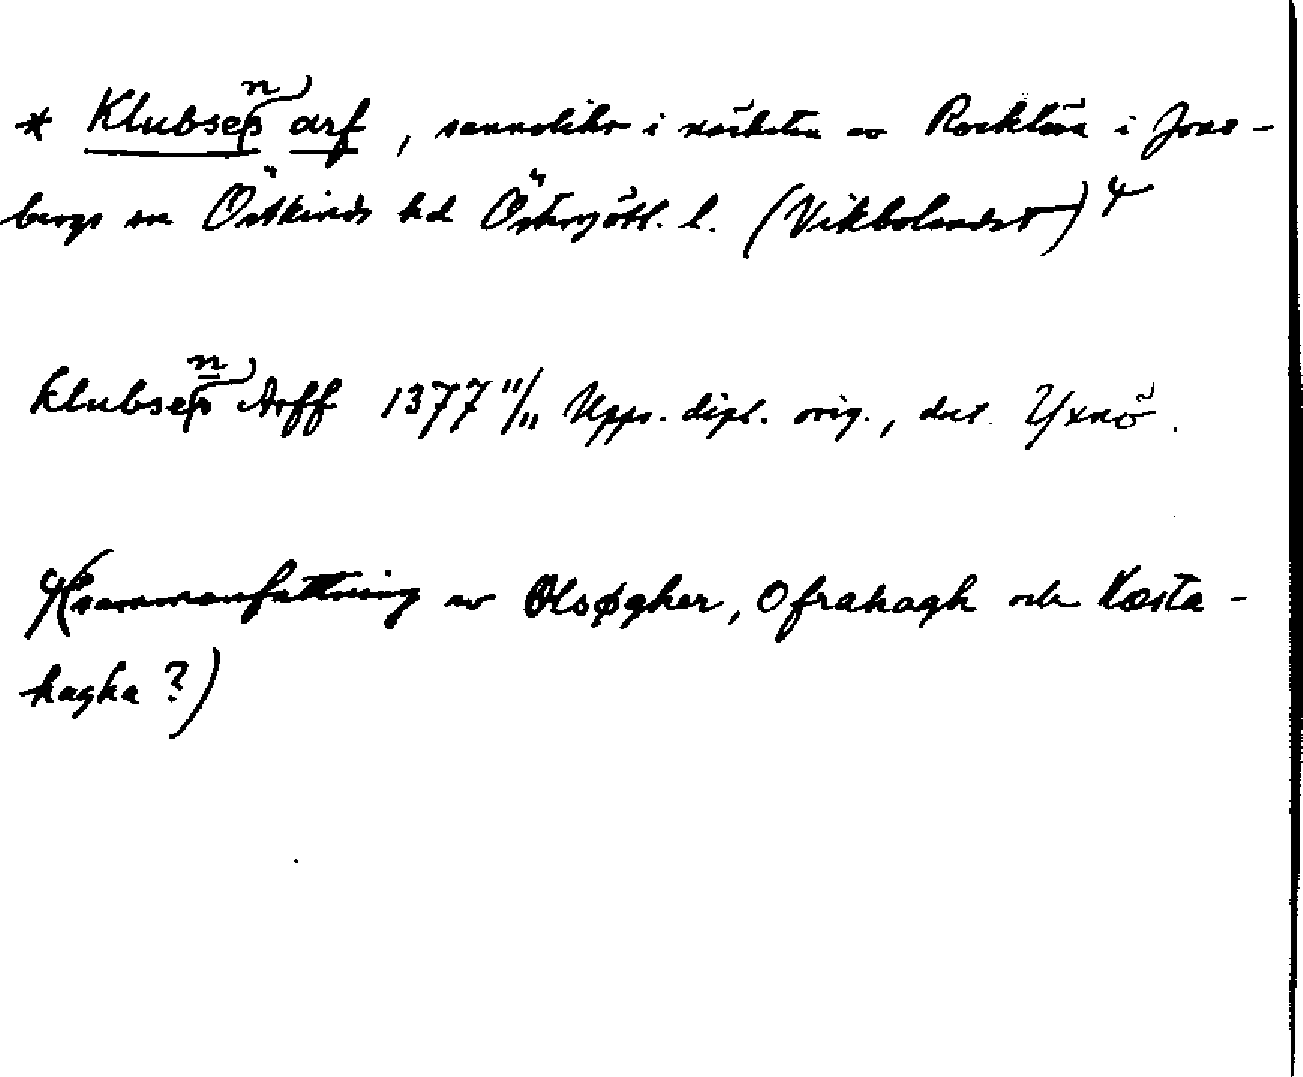 * Klubsens arf, sannolikt i närheten av Rocklösa i Jons-
bergs sn Östkinds hd Östergötl. l. (Vikbolandet) 4
Klubsens Arff 1377 11/11 Upps. dipl. orig., dat. Yxnö.
4(sammanfattning av Olsøgher, Ofrahagh och Væsta-
hagha?)